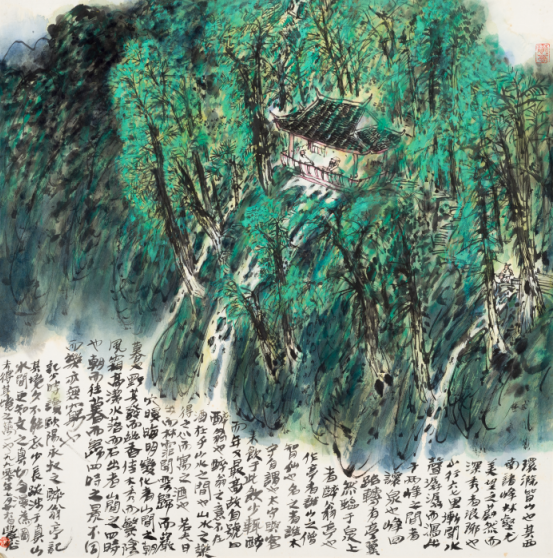 環滁皆山也其西
南諸峰林壑尤
美望之蔚然而
深秀者琅琊也
山行六七里漸聞水
聲潺潺而瀉
于兩峰之間者
讓泉也峰回
路轉有亭翼
然臨于泉上
者醉翁亭也
作亭者誰山之僧
智仙也名之者誰太
守自謂也太守與客
來飲于此飲少輒醉
而年又最高故自號曰
醉翁也醉翁之意不在
酒在乎山水之間也山水之樂
得之心而寓之酒也若夫日
出而林霏開雲歸而巖
穴暝晦明變化者山間之朝
暮也野芳發而幽香佳木秀而繁陰
風霜高潔水落而石出者山間之四時
也朝而往暮而歸四時之景不同
而樂亦無窮也
歐陽永叔之醉翁亭記
其境久不能忘少長游于真山
水間更知文之真也
一九九〇年